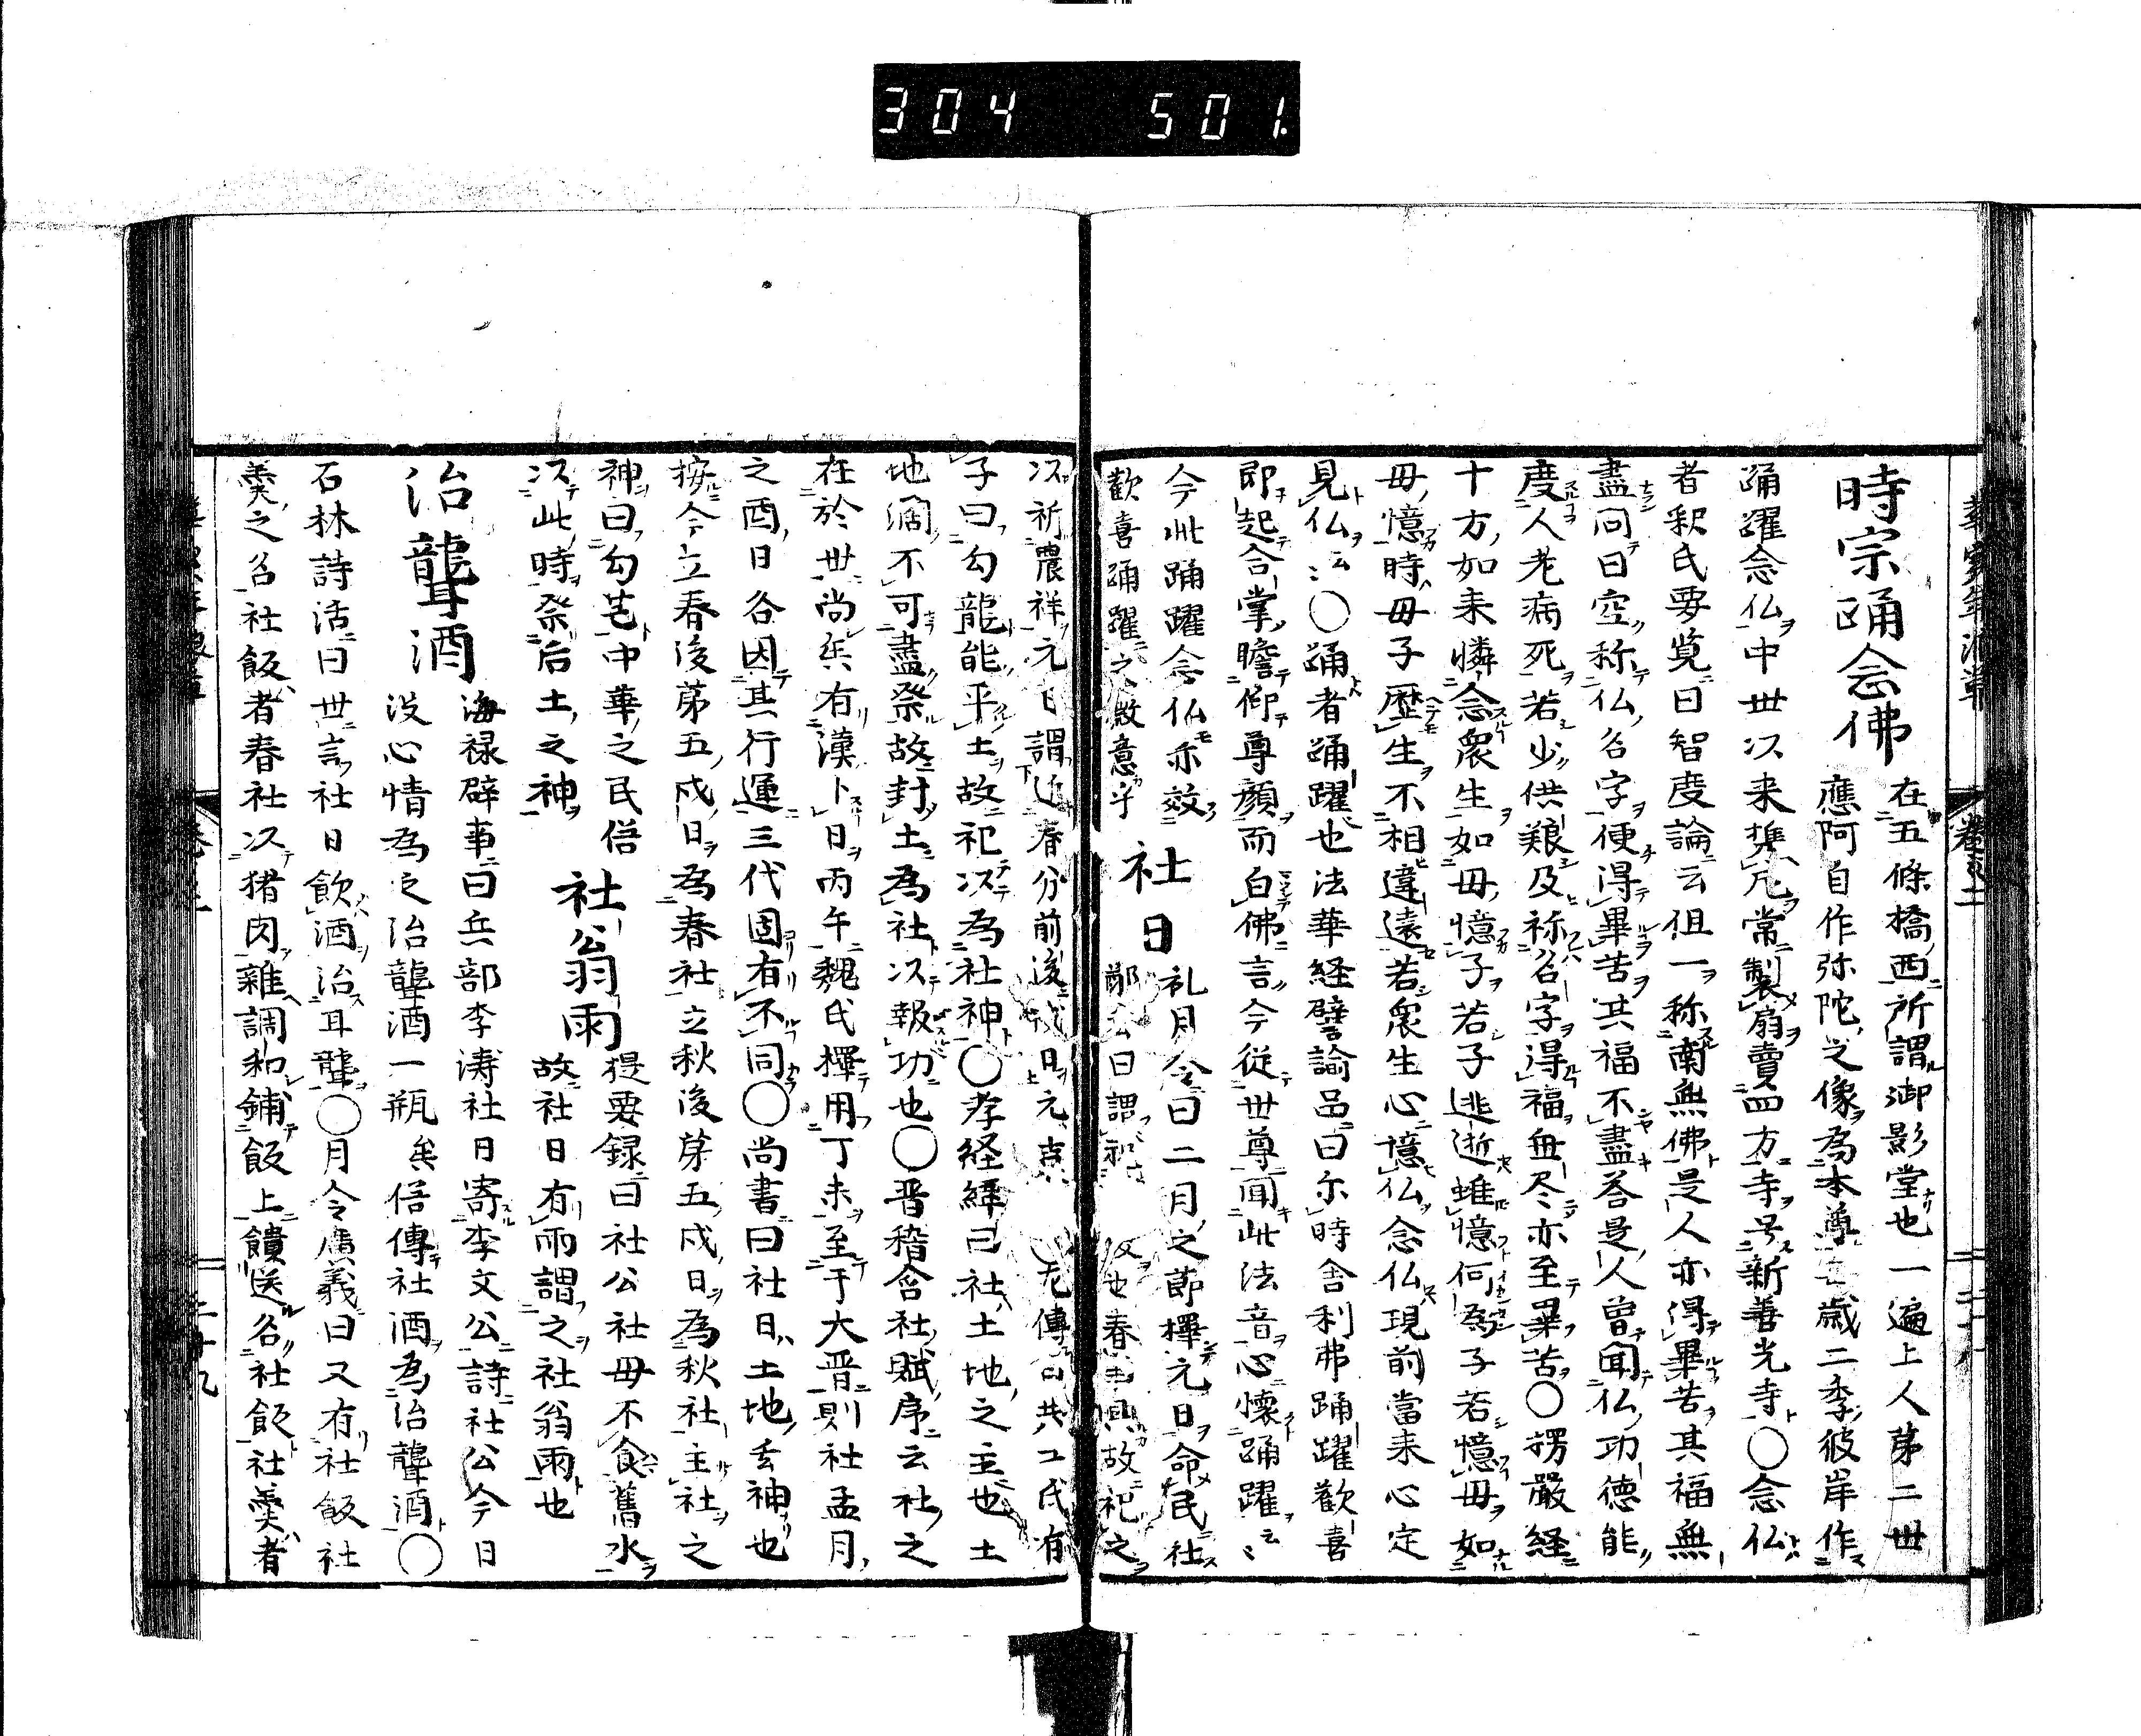 304 501.
時宗踊念佛 在五條橋西所謂御影堂也一遍上人第二世
應阿自作弥陀之像為本尊毎歳二季彼岸作
踊躍念仏中世以来撰凡常製扇賣四方寺号新善光寺〇念仏
者釈氏要覧曰智度論云但一称南無佛是人亦得畢苦其福無
盡問曰空称仏名字便得畢苦其福不盡荅是人曽聞仏功徳能
度人老病死若少供粮及称名字得福無尽亦至畢苦〇楞嚴経
十方如来憐念衆生如母憶子若子逃逝雖憶何為子若憶母如
母憶時母子歴生不相違遠若衆生心憶仏念仏現前當来心定
見仏云〇踊者踊躍也法華経譬諭品曰尓時舎利弗踊躍歓喜
即起合掌瞻仰尊顔而白佛言今従世尊聞此法音心懐踊躍云〻
今此踊躍念仏亦效
歓喜踊躍之微意乎
社日 礼月令曰二月之節擇元日命民社
春事興故祀之
以祈農祥元日謂近春分前後戊日元吉 左傳曰共工氏有
子曰勾龍能平土故祀以為社神〇孝経緯曰社土地之主也土
地濶不可盡祭故封土為社以報功也〇晋稽含社賦序云社之
在於世尚矣有漢卜日丙午魏氏擇用丁未至于大晋則社孟月
之酉日各因其行運三代固有不同〇尚書曰社日土地玄神也
按今立春後第五戊日為春社立秋後第五戊日為秋社主社之
神曰勾芒中華之民俗
以此時祭后土之神
社翁雨 提要録曰社公社母不食舊水
故社日有雨謂之社翁雨也
治聾酒 海禄碎事曰兵部李濤社日寄李文公詩社公今日
没心情為乏治聾酒一瓶矣俗傳社酒為治聾酒〇
石林詩活曰世言社日飲酒治耳聾〇月令廣義曰又有社飯社
羹之名社飯者春社以猪肉雜調和鋪飯上饋送名社飯社羹者